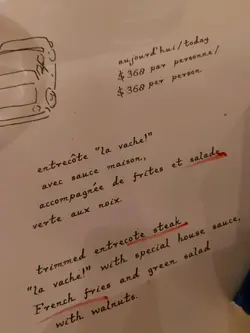 aujourd'hui/today
$368 par personne/
$368 per person.
entrecôte "la vache!"
avec sauce maison,
accompagnée de frites et salade
verte aux noix.
trimmed entrecote steak
"la vache!" with special house sauce,
French fries and green salad
with walnuts.